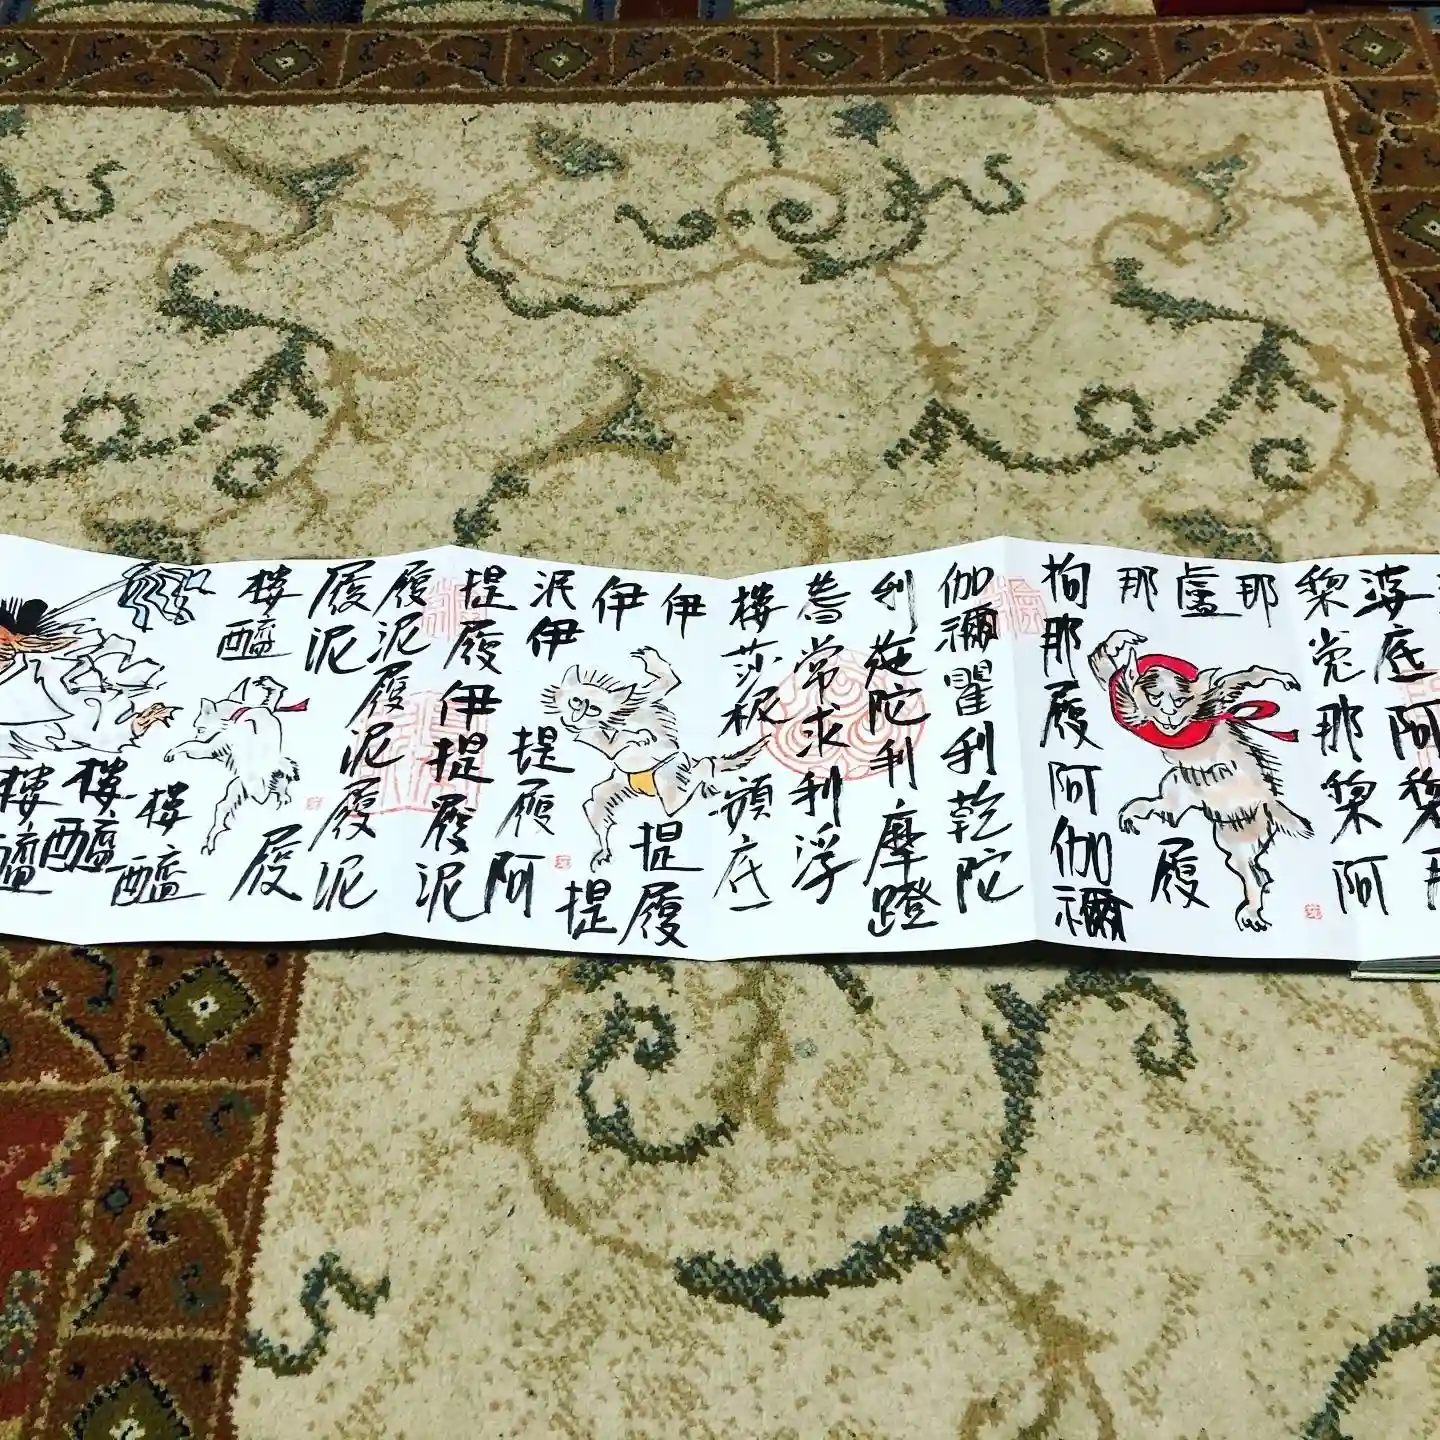 婆底阿梨那
梨㝹那梨阿
那
盧
那
履
拘那履阿伽禰
伽禰瞿利乾陀
利旃陀利摩蹬
耆常求利浮
樓莎柅頞底
伊提履
伊提
泯伊提履阿
提履伊提履泥
履泥履泥履泥
履泥履
樓醯
樓醯
樓醯
樓醯